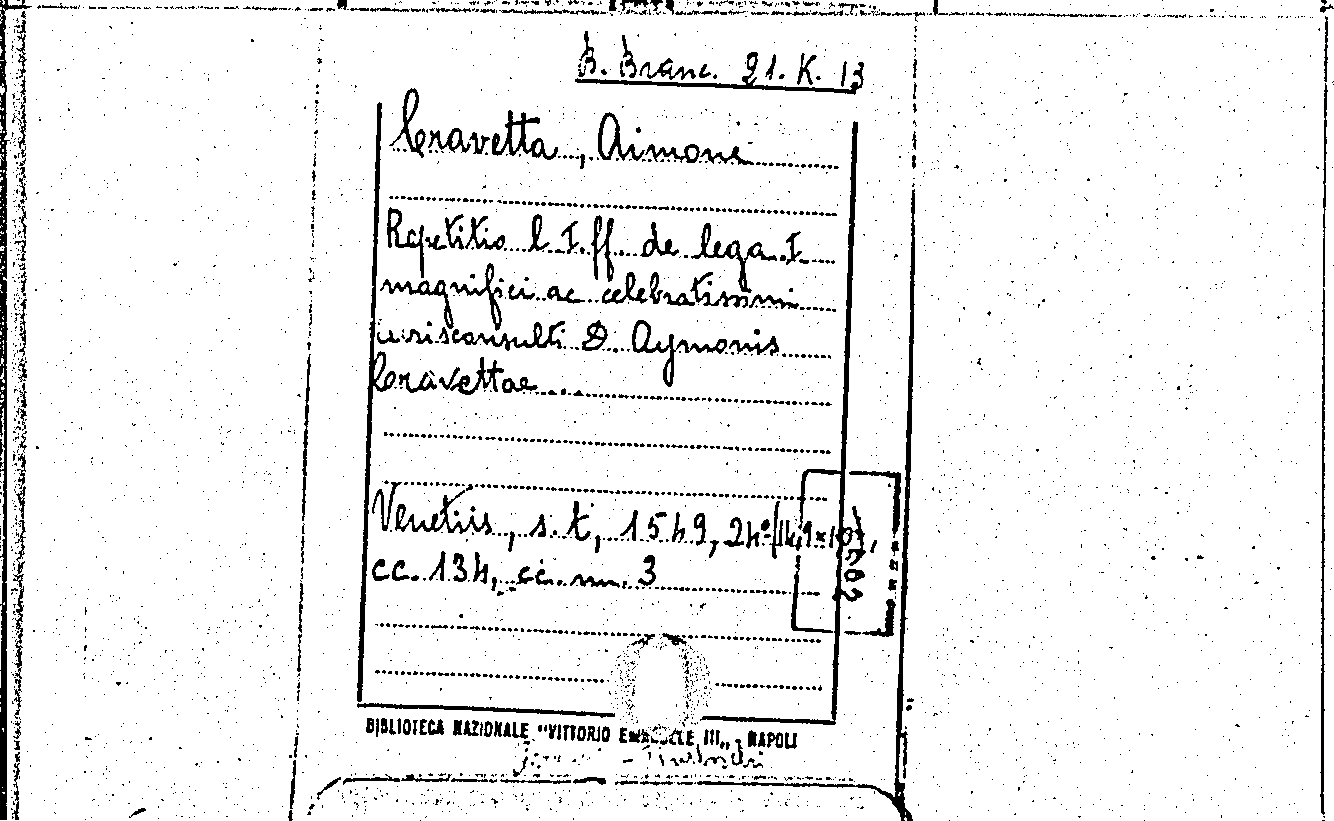 B. Branc. 21. K. 13
Cravetta, Aimone
Repetitio l. I. ff. de lega. I.
magnifici ac celebratissimi
iurisconsulti D. Aymonis
Cravettae...
Venetiis, s.t., 1549, 24°
cc. 134, cc. nn. 3
BIBLIOTECA NAZIONALE "VITTORIO EMANUELE III„ - NAPOLI